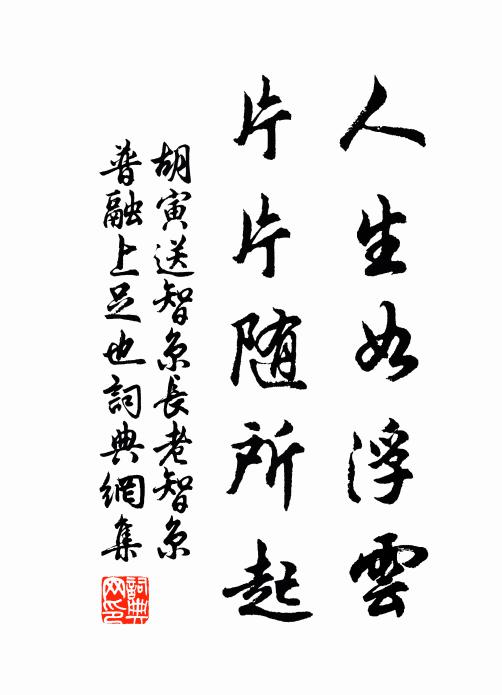 人生如浮雲
片片随所起
胡寅送智京長老智京
普融上足也詞典網集
詞典网印